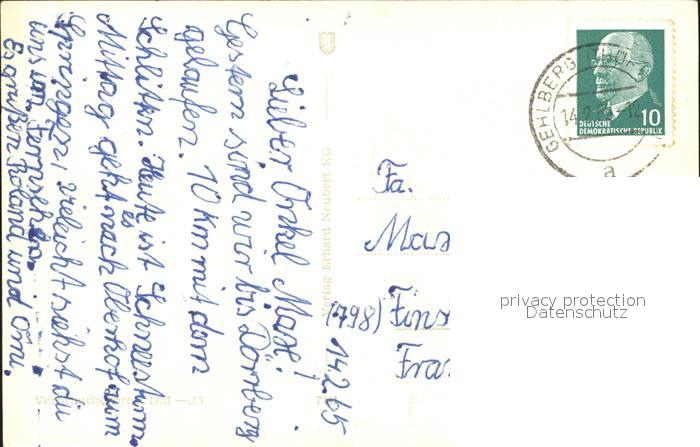 14.2.65
Lieber Onkel Max!
Gestern sind wir bis Dörrberg
gelaufen. 10 Km mit dem
Schlitten. Heute ist Schneesturm.
Mittag geht es nach Oberhof zum
Springen, vieleicht siehst du
uns im Fernsehen.
Es grüßen Roland und Omi.
Verlag Erhard Neubert KG
DM -,15
Fa.
Max
(798) Finst
Fran
GEHLBERG
14.2.65-12
a
10
DEUTSCHE
DEMOKRATISCHE REPUBLIK
privacy protection
Datenschutz